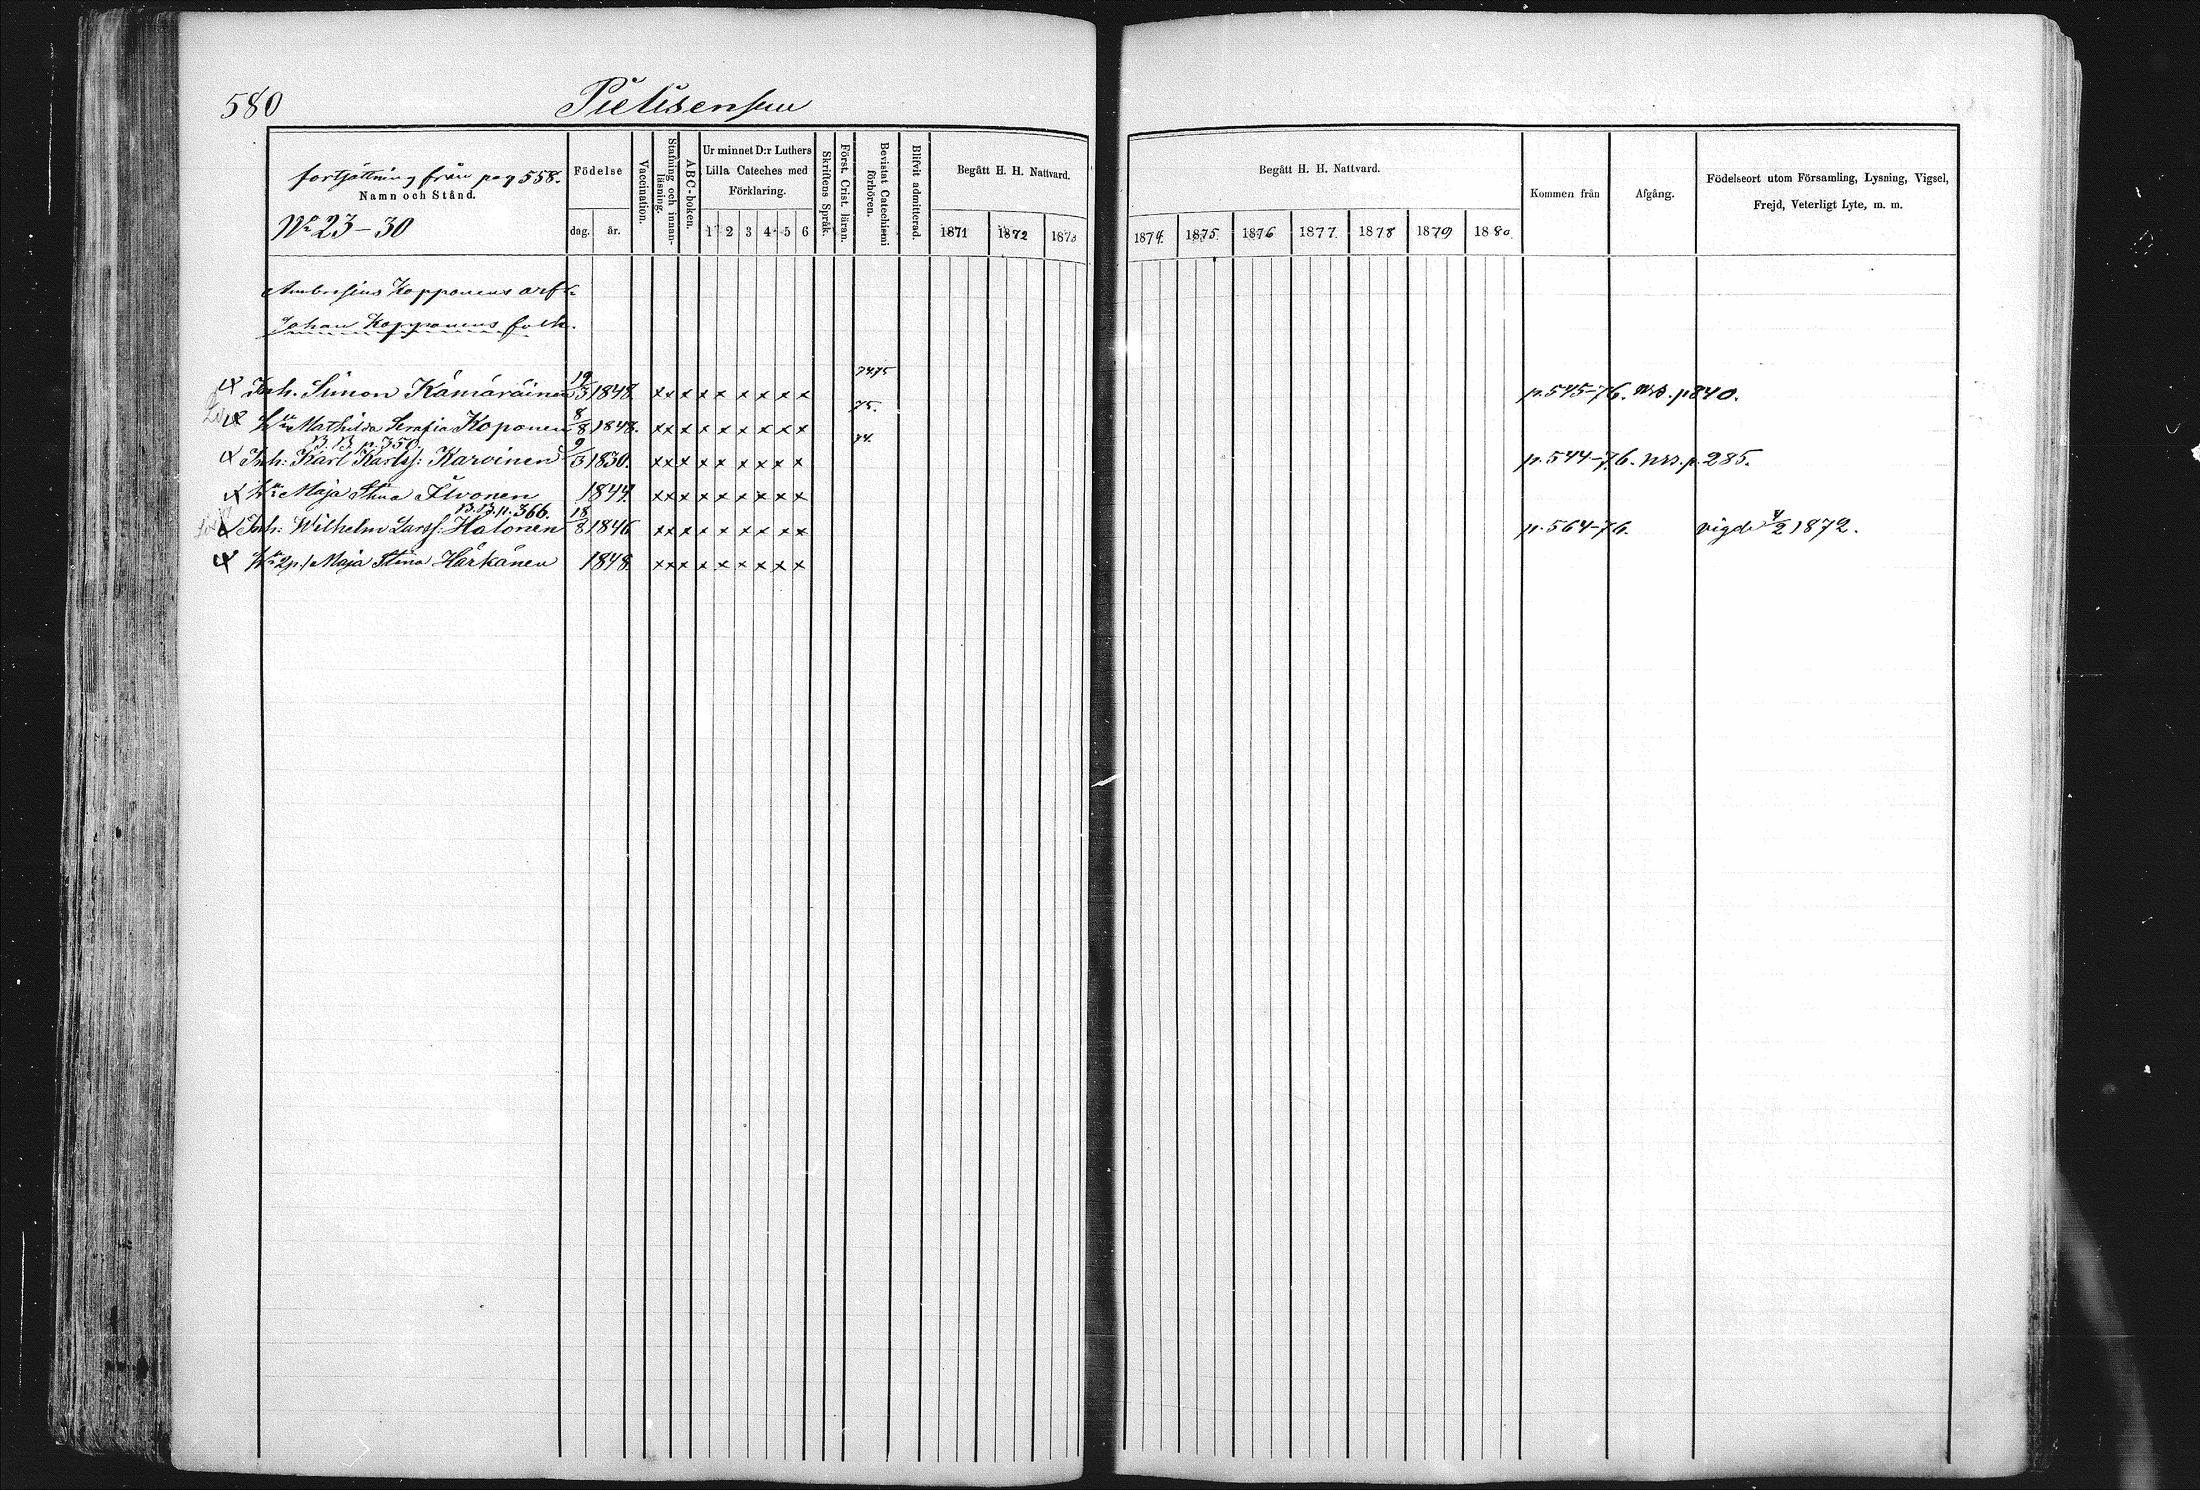 580
Pielisensuu
fortsättning från pag 558.
Namn och Stånd.
No 23-30
Födelse
dag. år.
Vaccination.
Stafning och innanläsning.
ABC-boken.
Ur minnet D:r Luthers Lilla Cateches med Förklaring.
1 2 3 4 5 6
Skriftens Språk.
Först. Crist. läran.
Bevistat Catechismi förhören.
Blifvit admitterad.
Begått H. H. Nattvard.
1871 1872 1873
Begått H. H. Nattvard.
1874. 1875 1876 1877. 1878 1879 1880.
Kommen från
Afgång.
Födelseort utom Församling, Lysning, Vigsel,
Frejd, Veterligt Lyte, m. m.
Ambrosius Kopponens
Johan Kopponens folk.
Inh. Simon Kämäräinen 19/3 1848. x x x x x x x x x 74.75 p. 545-76. p 840.
Hu Mathilda Serafia Koponen 8/8 1848. x x x x x x x x x 75.
B.B p. 350.
Inh: Karl Karlss: Karvinen 9/3 1850. x x x x x x x x x 74. p. 544-76. p. 285.
Hu Maja Stina Ilvonen 1844. x x x x x x x x x
B.B. p. 366.
Inh: Wilhelm Larss: Hatonen 18/8 1846 x x x x x x x x x p. 564-76. vigde 4/2 1872.
Hu Maja Stina Härkänen 1848. x x x x x x x x x